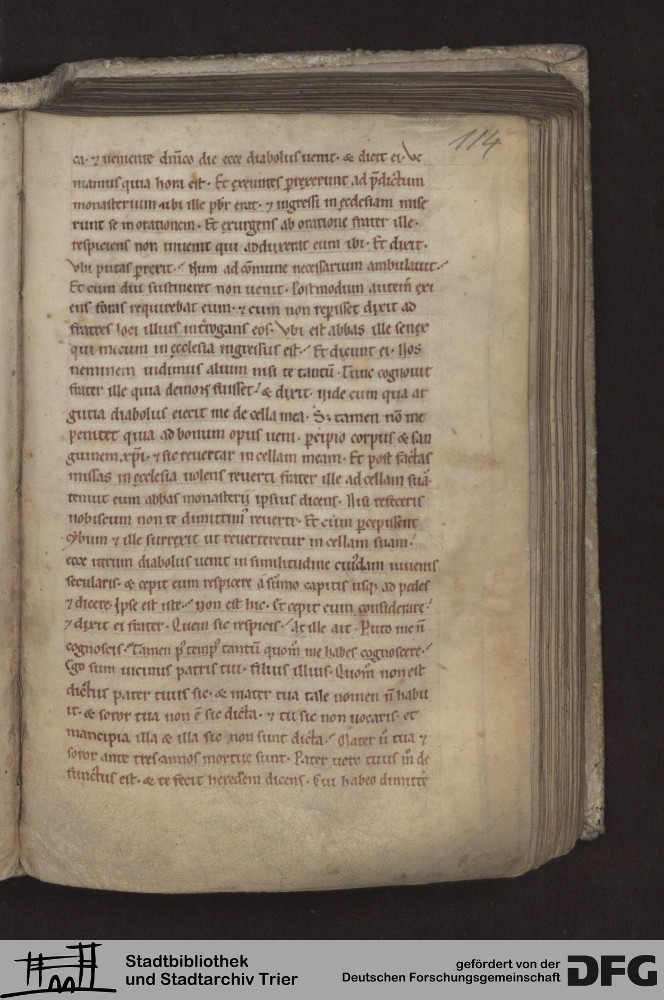 114
ca· ⁊ ueniente dnĩco die ecce diabolus uenit· & dicit ei· Ve
niamus quia hora est· Et exeuntes p̄rexerunt ad p̄dictum
monasterium ubi ille pbr̄ erat· ⁊ ingressi in ęcclesiam mise
runt se in orationem· Et exurgens ab oratione frater ille·
respiciens non inuenit qui adduxerat eum ibi· Et dixit·
Vbi putas p̄rexit· Num ad cōmune necessarium ambulauit·
Et cum diu sustineret non uenit· Postmodum autem exi
ens foras requirebat eum· ⁊ cum non rep̄isset dixit ad
fratres loci illius int̄rogans eos· Vbi est abbas ille senex
qui mecum in ęcclesia ingressus est· Et dicunt ei· Nos
neminem uidimus alium nisi te tantū· Tunc cognouit
frater ille quia demon fuisset· & dixit·
gutia diabolus eiecit me de cella mea· Sʒ tamen nō me
penitet quia ad bonum opus ueni· p̄cipio corpus & san
guinem xp̄i· ⁊ sic reuertar in cellam meam· Et post factas
missas in ęcclesia uolens reuerti frater ille ad cellam suā·
tenuit eum abbas monasterij ipsius dicens· Nisi refeceris
nobiscum non te dimittim᷒ reuerti· Et cum p̄cepissent
cybum ⁊ ille surrexit ut reuerteretur in cellam suam·
ecce iterum diabolus uenit in similitudine cuīdam iuuenis
secularis· & cepit eum respicere a sūmo capitis usqʒ ad pedes
⁊ dicere· Ipse est iste· Non est hic· Et cepit eum considerare·
⁊ dixit ei frater· Quem sic respicis· At ille ait· Puto me n̄
cognoscis· Tamen p᷒ temp᷒ tantū quom̊ me habes cognoscere·
Ego sum uicinus patris tui· filius illius· Quom̊ non est
dictus pater tuus sic· & mater tua tale nomen n̄ habu
it· & soror tua non ē sic dicta· ⁊ tu sic non uocaris· et
mancipia illa & illa sic non sunt dicta· Mater ū tua ⁊
soror ante tres annos mortuę sunt· Pater uero tuus m̊ de
functus est· & te fecit heredem dicens· Cui habeo dimitte
Stadtbibliothek
und Stadtarchiv Trier
gefördert von der
Deutschen Forschungsgemeinschaft
DFG